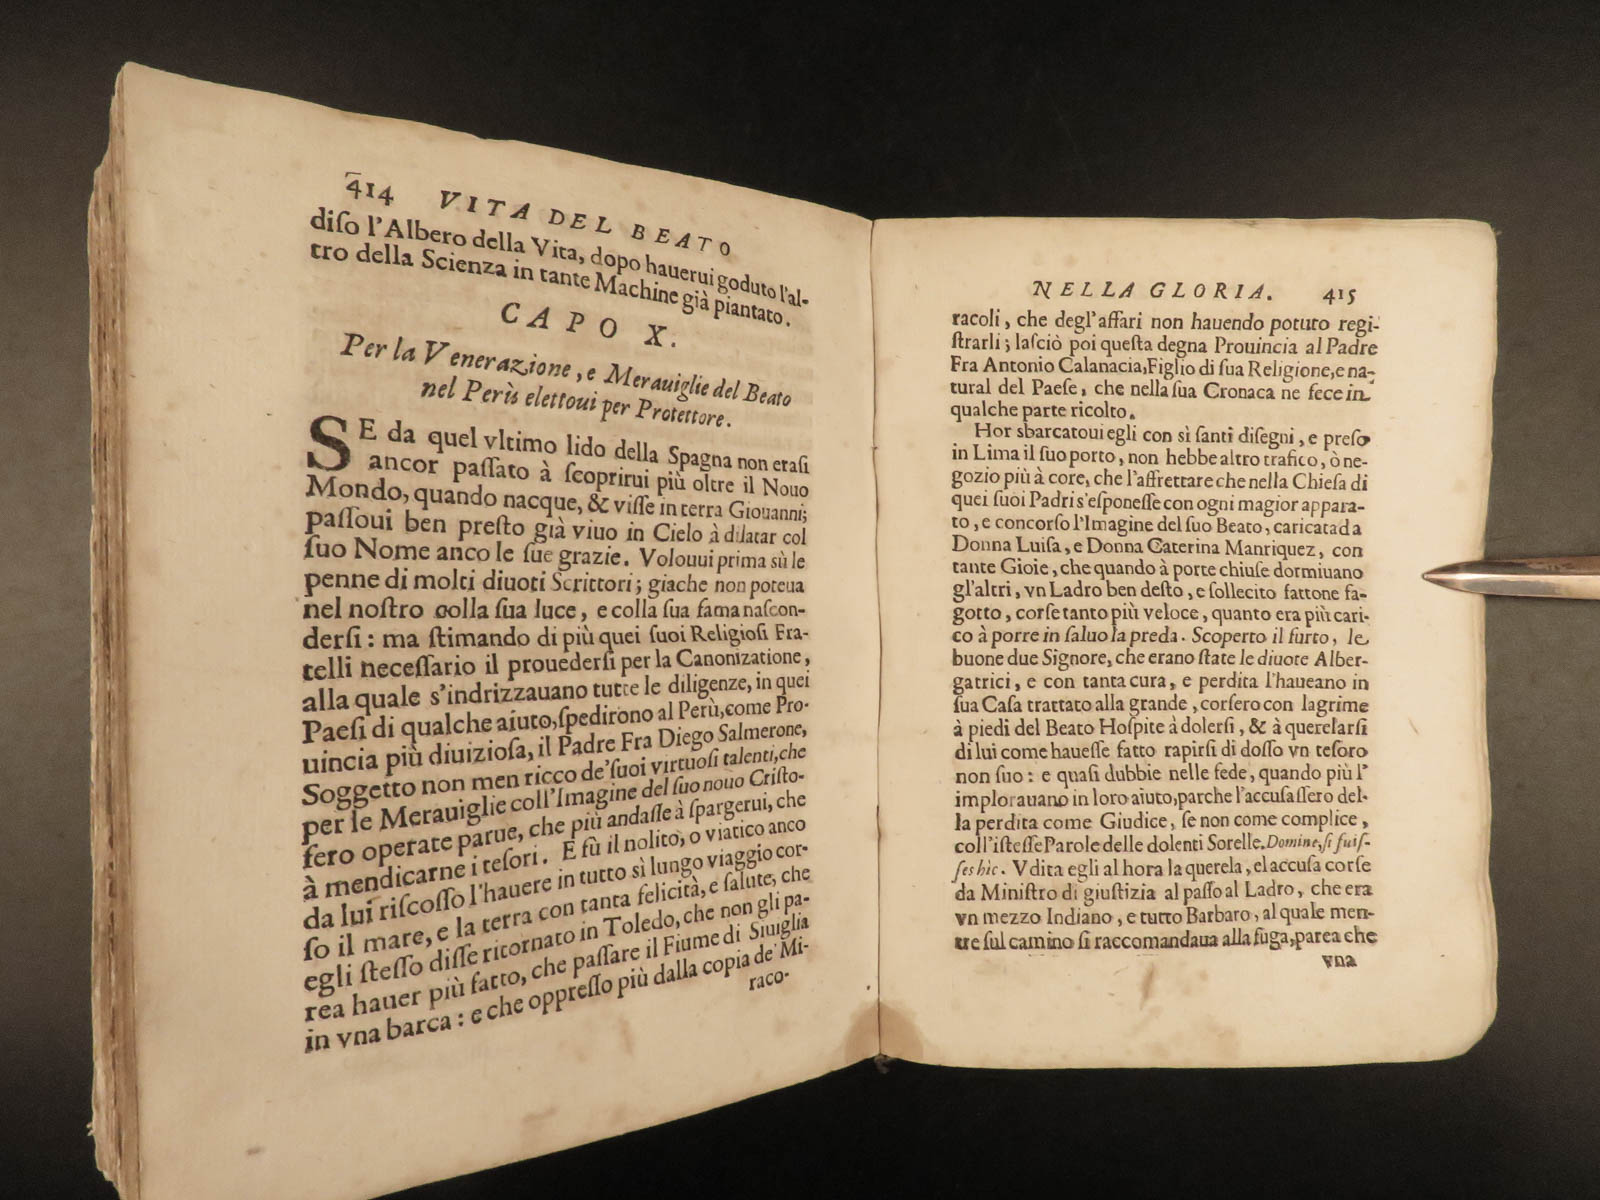 414 VITA DEL BEATO
diſo l'Albero della Vita, dopo hauerui goduto l'al-
tro della Scienza in tante Machine già piantato.
CAPO X.
Per la Venerazione, e Merauiglie del Beato
nel Perù elettoui per Protettore.
SE da quel vltimo lido della Spagna non eraſi
ancor paſſato à ſcoprirui più oltre il Nouo
Mondo, quando nacque, & viſſe in terra Giouanni;
paſſoui ben preſto già viuo in Cielo à dilatar col
ſuo Nome anco le ſue grazie. Volouui prima sù le
penne di molti diuoti Scrittori; giache non poteua
nel noſtro colla ſua luce, e colla ſua fama naſcon-
derſi: ma ſtimando di più quei ſuoi Religioſi Fra-
telli neceſſario il prouederſi per la Canonizatione,
alla quale s'indrizzauano tutte le diligenze, in quei
Paeſi di qualche aiuto, ſpedirono al Perù, come Pro-
uincia più diuizioſa, il Padre Fra Diego Salmerone,
Soggetto non men ricco de' ſuoi virtuoſi talenti, che
per le Merauiglie coll'Imagine del ſuo nouo Criſto-
fero operate parue, che più andaſſe à ſpargerui, che
à mendicarne i teſori. E fù il nolito, o viatico anco
da lui riſcoſſo l'hauere in tutto sì lungo viaggio cor-
ſo il mare, e la terra con tanta felicità, e ſalute, che
egli ſteſſo diſſe ritornato in Toledo, che non gli pa-
rea hauer più fatto, che paſſare il Fiume di Siuiglia
in vna barca: e che oppreſſo più dalla copia de' Mi-
raco-
NELLA GLORIA. 415
racoli, che degl'affari non hauendo potuto regi-
ſtrarli; laſciò poi queſta degna Prouincia al Padre
Fra Antonio Calanacia, Figlio di ſua Religione, e na-
tural del Paeſe, che nella ſua Cronaca ne fece in
qualche parte ricolto.
Hor sbarcatoui egli con sì ſanti diſegni, e preſo
in Lima il ſuo porto, non hebbe altro trafico, ò ne-
gozio più à core, che l'affrettare che nella Chieſa di
quei ſuoi Padri s'eſponeſſe con ogni magior appara-
to, e concorſo l'Imagine del ſuo Beato, caricata da
Donna Luiſa, e Donna Caterina Manriquez, con
tante Gioie, che quando à porte chiuſe dormiuano
gl'altri, vn Ladro ben deſto, e ſollecito fattone fa-
gotto, corſe tanto più veloce, quanto era più cari-
co à porre in ſaluo la preda. Scoperto il furto, le
buone due Signore, che erano ſtate le diuote Alber-
gatrici, e con tanta cura, e perdita l'haueano in
ſua Caſa trattato alla grande, corſero con lagrime
à piedi del Beato Hoſpite à dolerſi, & à querelarſi
di lui come haueſſe fatto rapirſi di doſſo vn teſoro
non ſuo: e quaſi dubbie nelle fede, quando più l'
implorauano in loro aiuto, parche l'accuſaſſero del-
la perdita come Giudice, ſe non come complice,
coll'iſteſſe Parole delle dolenti Sorelle. Domine, ſi fuiſ-
ſes hìc. Vdita egli al hora la querela, el accuſa corſe
da Miniſtro di giuſtizia al paſſo al Ladro, che era
vn mezzo Indiano, e tutto Barbaro, al quale men-
tre ſul camino ſi raccomandaua alla fuga, parea che
vna